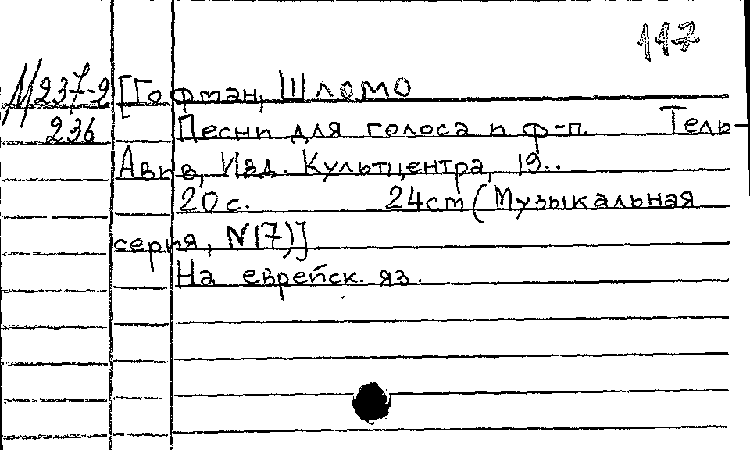 117
М237-2 [Гофман, Шломо
236 Песни для голоса и ф-п. Тель-
Авив, Изд. Культцентра, 19..
20 с. 24cm (Музыкальная
серия, N17)]
На еврейск. яз.